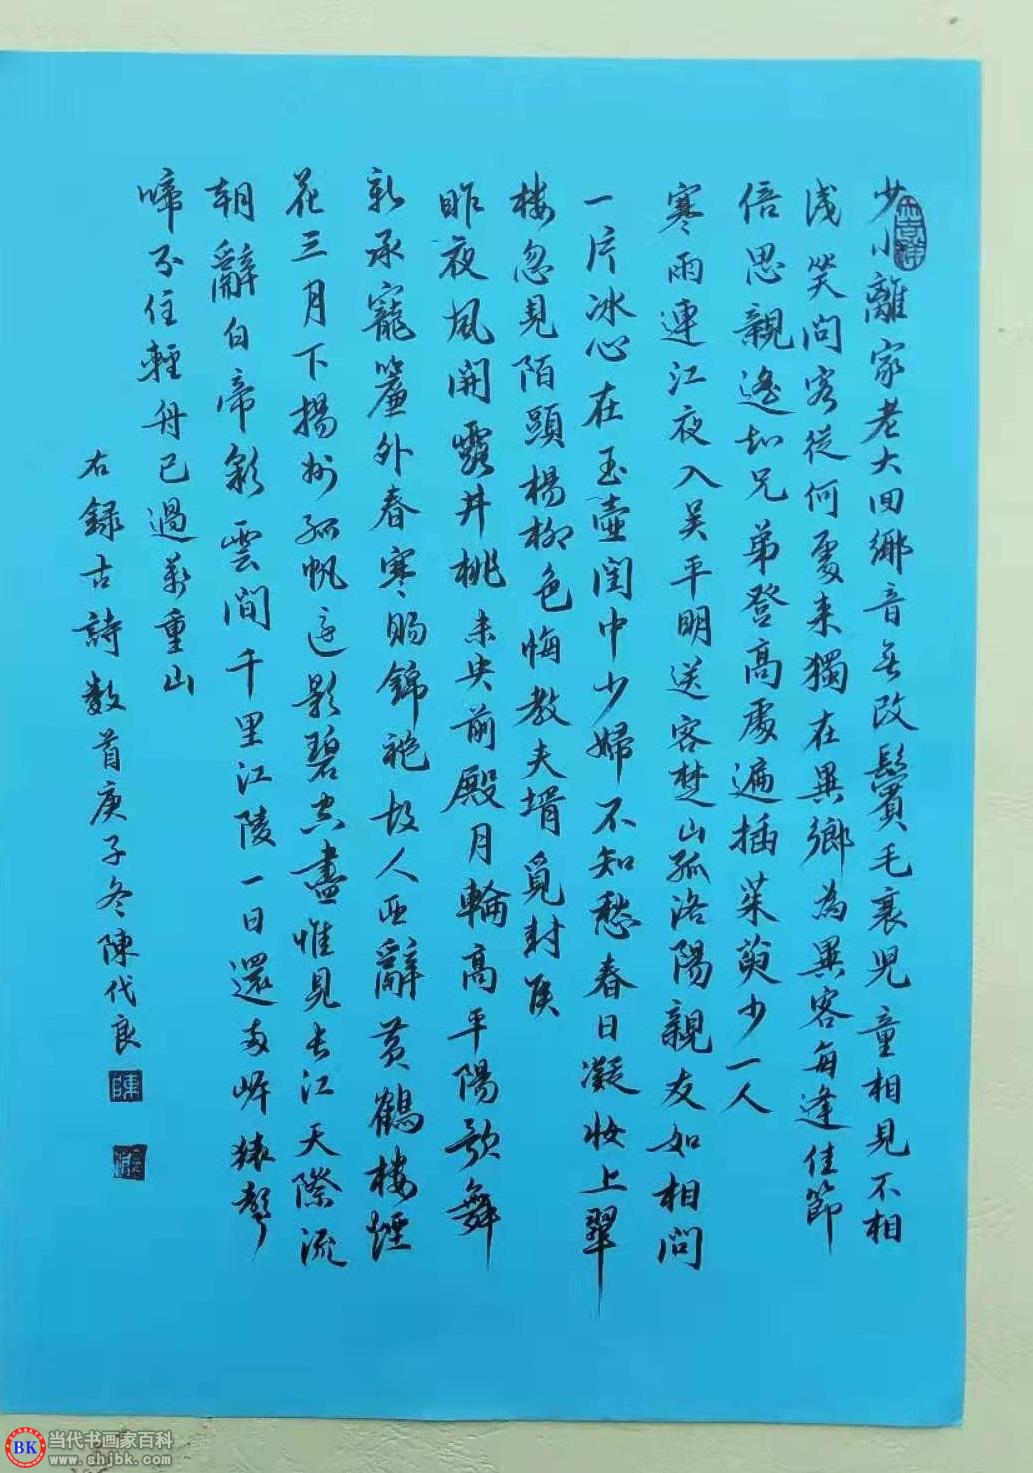 少小離家老大回鄉音無改鬢毛衰児童相見不相
淺笑問客從何處来獨在異鄉為異客每逢佳節
倍思親遙知兄弟登高處遍插茱萸少一人
寒雨連江夜入吴平明送客楚山孤洛陽親友如相問
一片冰心在玉壺閨中少婦不知愁春日凝妝上翠
楼忽見陌頭楊柳色悔教夫壻覓封侯
昨夜風開露井桃未央前殿月輪高平陽歌舞
新承寵簾外春寒賜錦袍故人西辭黄鶴楼煙
花三月下揚州孤帆遠影碧空盡惟見長江天際流
朝辭白帝彩雲間千里江陵一日還两岸猿聲
啼不住輕舟已過萬重山
右録古詩數首庚子冬陳代良
BK
当代书画家百科
www.shjbk.com